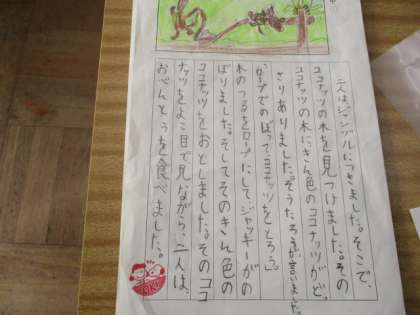 二人はジャングルにつきました。そこで、
ココナッツの木を見つけました。その
ココナッツの木にきん色のココナッツがど
さりありました。そうたろうが言いました。
「ロープでのぼってココナッツをとろう。」
木のつるをロープにして、ジャッキーがの
ぼりました。そしてそのきん色の
ココナッツをおとしました。そのココ
ナッツをよこ目で見ながら、二人は、
おべんとうを食べました。